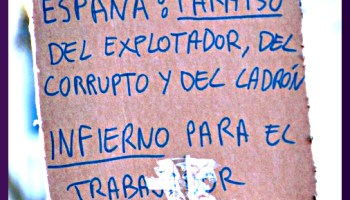 ESPAÑA: PARAISO
DEL EXPLOTADOR, DEL
CORRUPTO Y DEL LADRÓN
INFIERNO PARA EL
TRABAJADOR